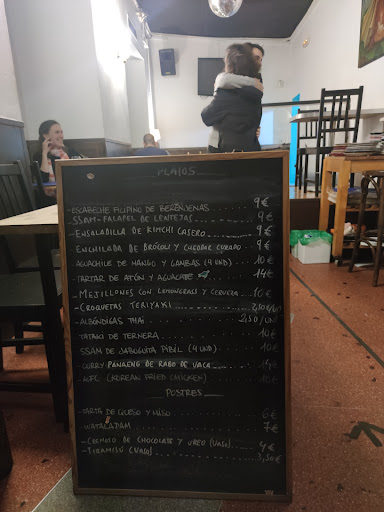 PLATOS
- ESCABECHE FILIPINO DE BERENJENAS 9€
- SSAM - FALAFEL DE LENTEJAS 9€
- ENSALADILLA DE KIMCHI CASERO 9€
- ENCHILADA DE BRÓCULI Y CHEDDAR CURADO 9€
- AGUACHILE DE MANGO Y GAMBAS (4 UND) 10€
- TARTAR DE ATÚN Y AGUACATE 14€
- MEJILLONES CON LEMONGRASS Y CERVEZA 10€
- CROQUETAS TERIYAKI 2,50€/U
- ALBÓNDIGAS THAI
TATAKI DE TERNERA 10€
SSAM DE JABUGUITA PIBIL (4 UND) 10€
CURRY PANAENG DE RABO DE VACA 14€
- KFC (KOREAN FRIED CHICKEN) 10€
POSTRES
- TARTA DE QUESO Y MISO 6€
- WATALAPAM 7€
- CREMOSO DE CHOCOLATE Y (VASO) 4€
- TIRAMISÚ (VASO) 3,50€